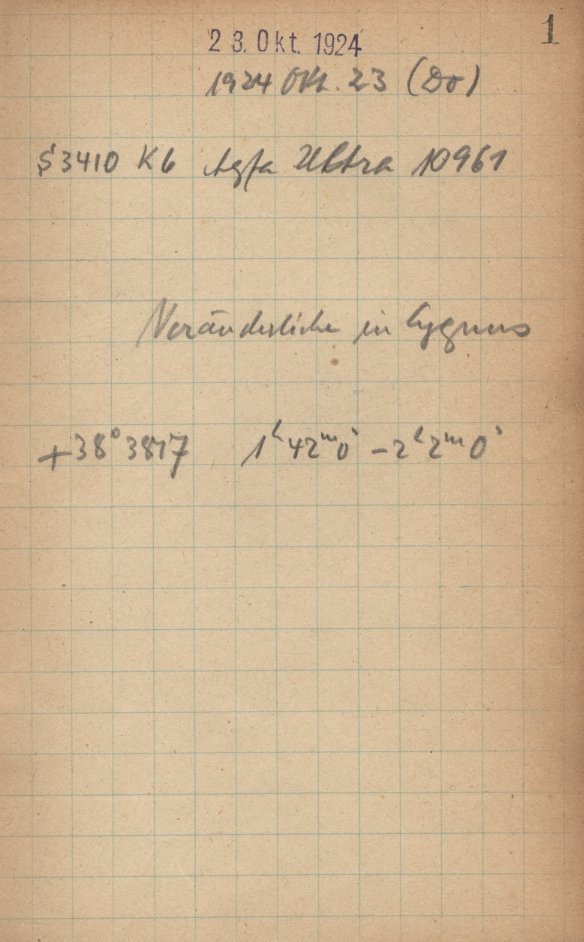 1
23. Okt. 1924
1924 Okt. 23 (Do)
S3410 K6 Agfa Ultra 10961
Veränderliche in Cygnus
+38° 3817 1ʰ 42ᵐ 0ˢ – 2ʰ 2ᵐ 0ˢ